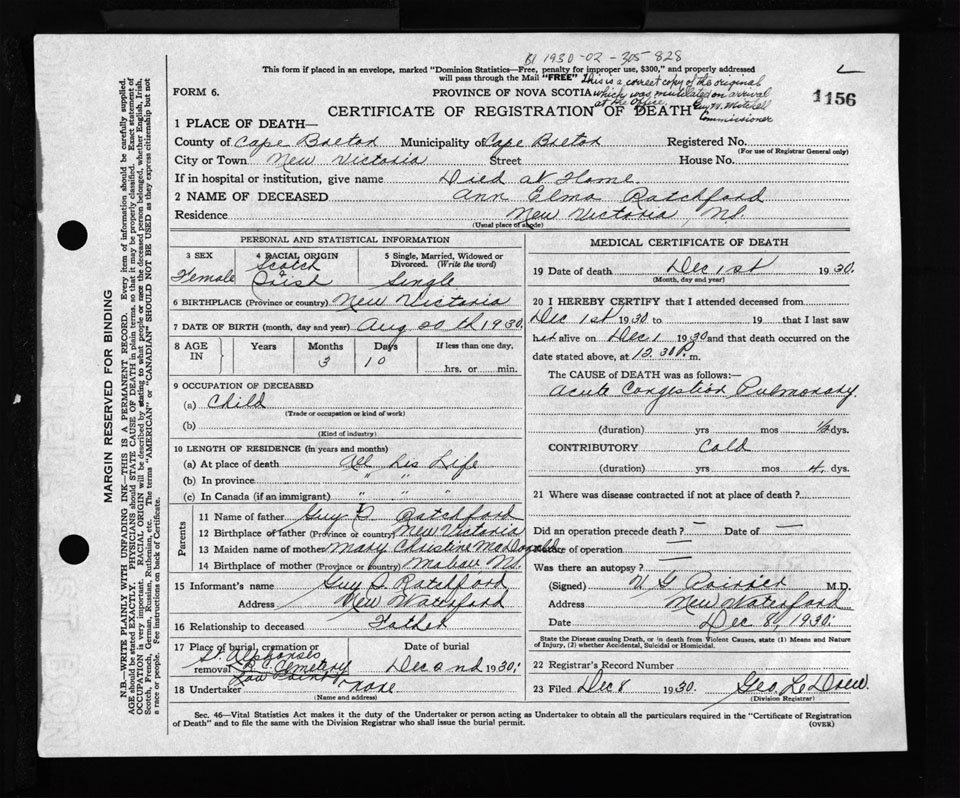 B1 1930-02-305-828
This form if placed in an envelope, marked "Dominion Statistics—Free, penalty for improper use, $300," and properly addressed
will pass through the Mail "FREE" This is a correct copy of the original
FORM 6. PROVINCE OF NOVA SCOTIA which was mutilated on arrival 1156
at the Office.
CERTIFICATE OF REGISTRATION OF DEATH
Commissioner
1 PLACE OF DEATH—
County of Cape Breton Municipality of Cape Breton Registered No.
(For use of Registrar General only)
City or Town New Victoria Street House No.
If in hospital or institution, give name Died at Home
2 NAME OF DECEASED Ann Elma Ratchford
Residence New Victoria, N.S.
(Usual place of abode)
PERSONAL AND STATISTICAL INFORMATION
3 SEX 4 RACIAL ORIGIN 5 Single, Married, Widowed or
Divorced. (Write the word)
Female Scotch Irish Single
6 BIRTHPLACE (Province or country) New Victoria
7 DATE OF BIRTH (month, day and year) Aug 20th 1930.
8 AGE IN Years Months Days If less than one day,
3 10 hrs. or min.
9 OCCUPATION OF DECEASED
(a) Child
(Trade or occupation or kind of work)
(b)
(Kind of industry)
10 LENGTH OF RESIDENCE (in years and months)
(a) At place of death All his Life
(b) In province " " "
(c) In Canada (if an immigrant) " " "
Parents
11 Name of father Guy I Ratchford
12 Birthplace of father (Province or country) New Victoria
13 Maiden name of mother Mary Christine MacDonald
14 Birthplace of mother (Province or country) Mabou N.S.
15 Informant's name Guy I. Ratchford
Address New Waterford
16 Relationship to deceased Father
17 Place of burial, cremation or Date of burial
St. Alphonsus
removal R.C. Cemetery Dec 2nd 1930.
Low Point
18 Undertaker none
(Name and address)
MEDICAL CERTIFICATE OF DEATH
19 Date of death Dec 1st 1930.
(Month, day and year)
20 I HEREBY CERTIFY that I attended deceased from
Dec 1st 1930 to 19 that I last saw
her alive on Dec 1 1930 and that death occurred on the
date stated above, at 12.30 P. m.
The CAUSE of DEATH was as follows:—
Acute Congestion Pulmonary
(duration) yrs mos ½ dys.
CONTRIBUTORY Cold
(duration) yrs mos 4 dys.
21 Where was disease contracted if not at place of death?
Did an operation precede death? — Date of —
Nature of operation —
Was there an autopsy? —
(Signed) M.D.
Address New Waterford
Date Dec 8, 1930.
State the Disease causing Death, or in death from Violent Causes, state (1) Means and Nature
of Injury, (2) whether Accidental, Suicidal or Homicidal.
22 Registrar's Record Number
23 Filed Dec 8 1930. Geo LeDrew.
(Division Registrar)
Sec. 46—Vital Statistics Act makes it the duty of the Undertaker or person acting as Undertaker to obtain all the particulars required in the "Certificate of Registration
of Death" and to file the same with the Division Registrar who shall issue the burial permit. (OVER)
MARGIN RESERVED FOR BINDING
N.B.—WRITE PLAINLY WITH UNFADING INK—THIS IS A PERMANENT RECORD. Every item of information should be carefully supplied.
AGE should be stated EXACTLY. PHYSICIANS should STATE CAUSE OF DEATH in plain terms, so that it may be properly classified. Exact statement of
OCCUPATION is very important. RACIAL ORIGIN will be described by stating to what people or race the deceased person belonged, whether English, Irish,
Scotch, French, German, Russian, Ruthenian, etc. The terms "AMERICAN" or "CANADIAN" SHOULD NOT BE USED as they express citizenship but not
a race or people. Fee instructions on back of Certificate.